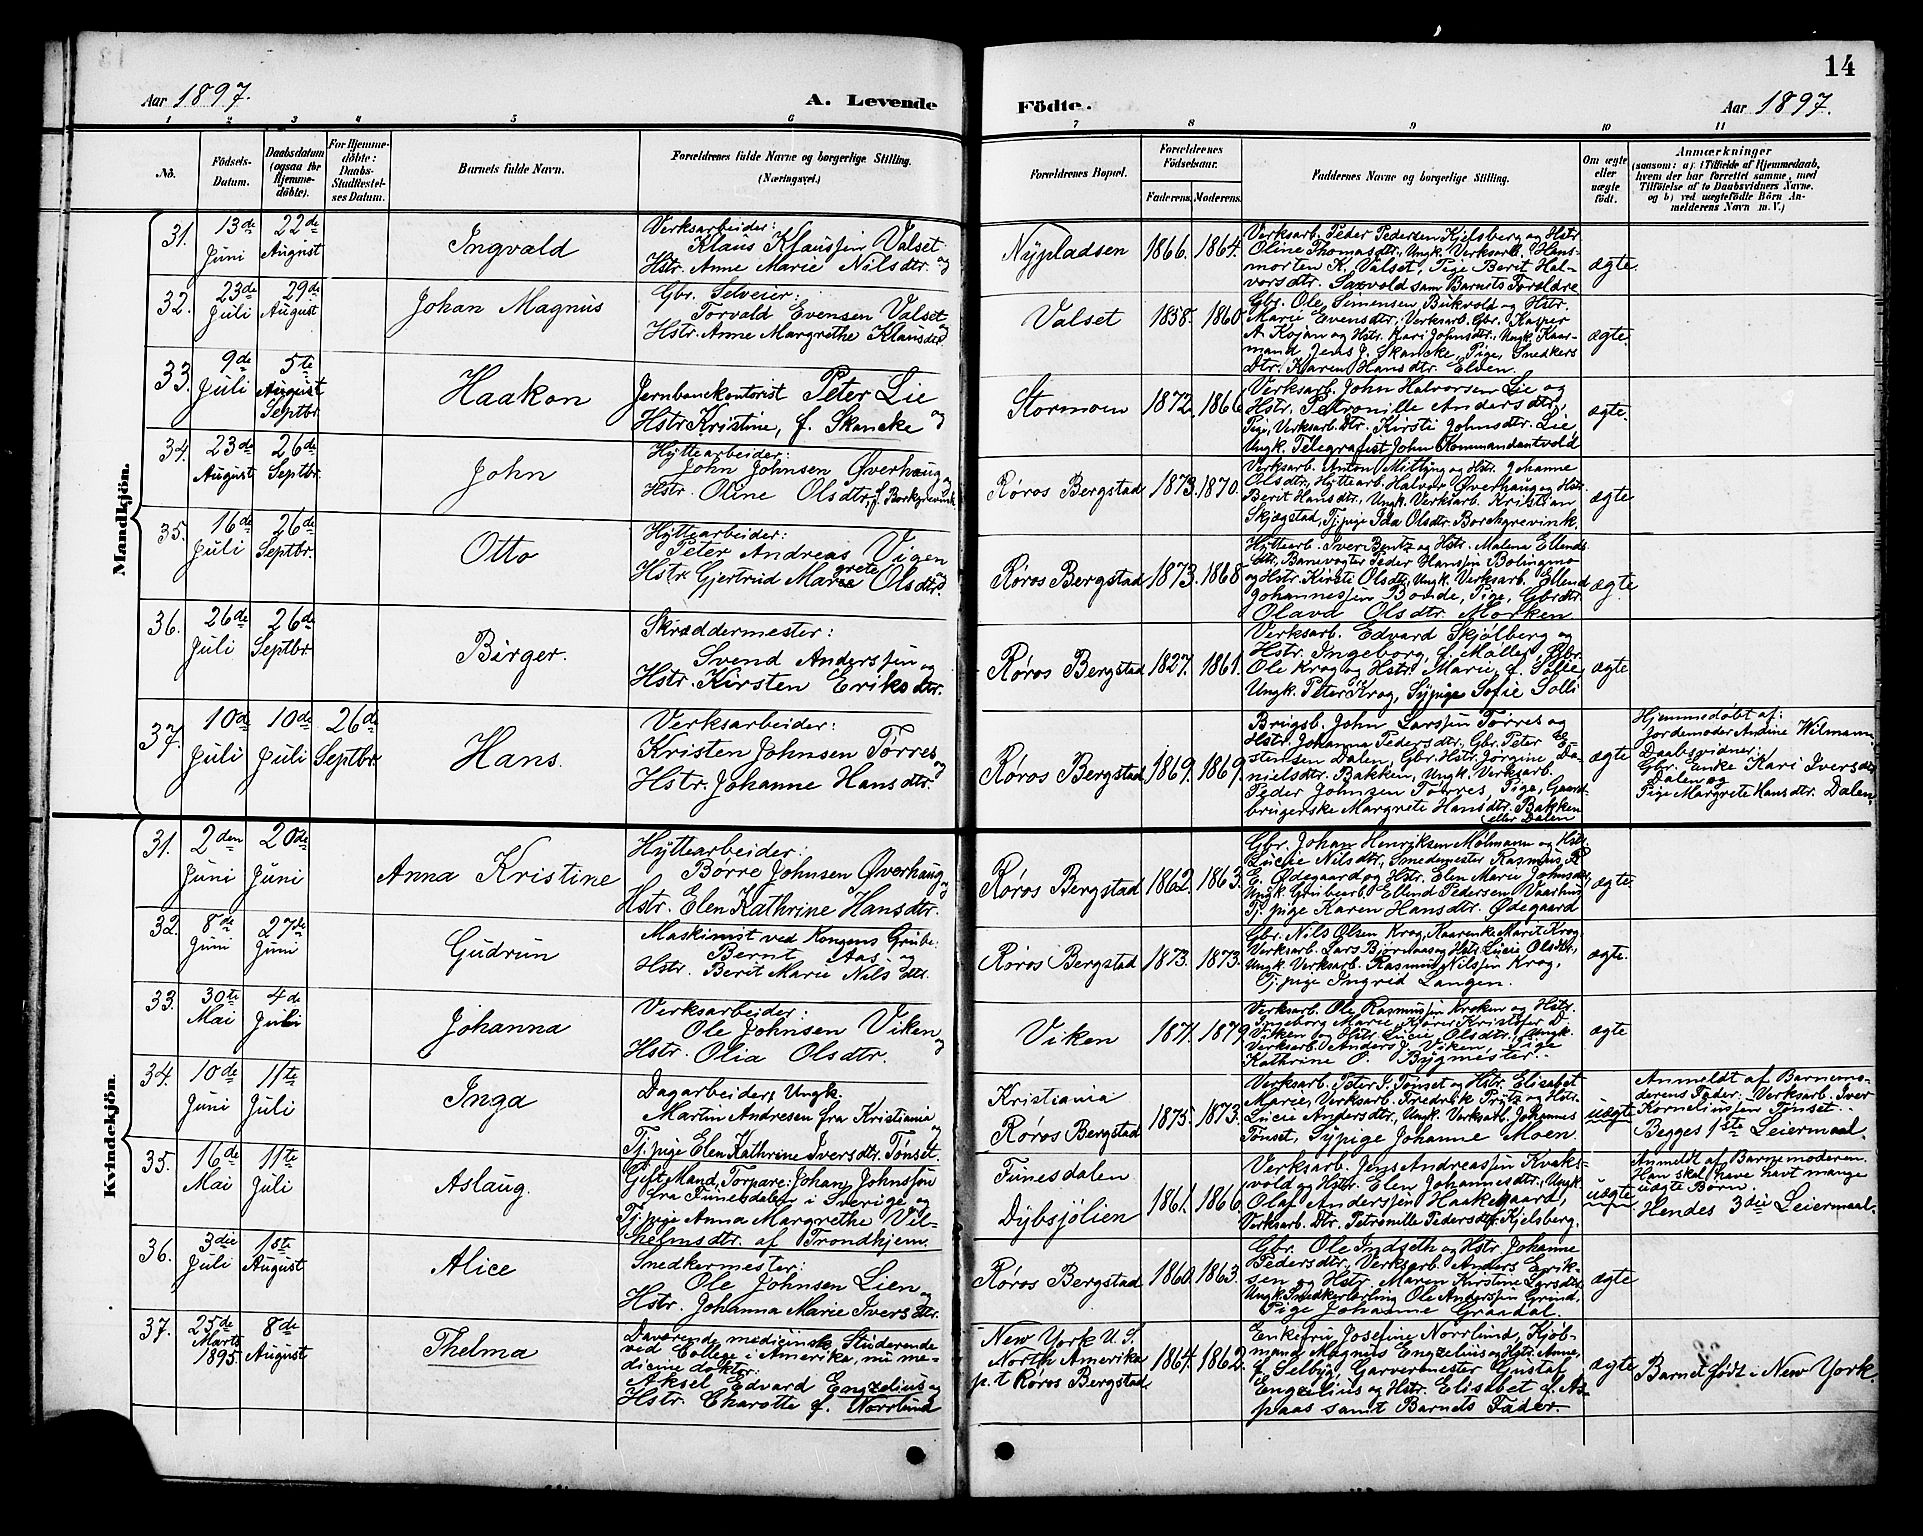 Aar 1897.
A. Levende
Födte.
Aar 1897.
14
1 2 3 4 5 6 7 8 9 10 11
No.
Födsels-
Datum.
Daabsdatum
(ogsaa for
Hjemme-
döbte).
For Hjemme-
döbte:
Daabs-
Stadfæstel-
ses Datum.
Barnets fulde Navn.
Forældrenes fulde Navne og borgerlige Stilling.
(Næringsvei.)
Forældrenes Bopæl.
Forældrenes
Födselsaar.
Faderens. Moderens.
Faddernes Navne og borgerlige Stilling.
Om ægte
eller
uægte
födt.
Anmærkninger
(saasom: a) i Tilfælde af Hjemmedaab,
hvem der har forrettet samme, med
Tilföielse af to Daabsvidners Navne,
og b) ved uægtefödte Börn An-
melderens Navn m. V.)
Mandkjön.
31.
13de
Juni
22de
August
Ingvald
Verksarbeider:
Klaus Klaussen Valset og
Hstr. Anne Marie Nilsdtr.
Nypladsen
1866. 1864.
Verksarb. Peder Pedersen Kjelsberg og Hstr.
Oline Thomasdtr., Ungk. Verksarb. Hans-
morten K. Valset, Pige Berit Hal-
vorsdtr. Saxvold sam Barnets Forældre
ægte.
32.
23de
Juli
29de
August
Johan Magnus
Gbr. Selveier:
Torvald Evensen Valset og
Hstr. Anne Margrethe Klausdtr.
Valset
1858. 1860.
Gbr. Ole Simensen Bukvold og Hstr.
Marie Evensdtr., Verksarb. Gbr. Kasper
A. Kojan og Hstr. Kari Johnsdtr., Ungk. Kaar-
mand Jens J. Skancke, Pige, Snedkers
Dtr. Karen Hansdtr. Elden.
ægte.
33.
9de
Juli
5te
August
Septbr.
Haakon
Jernbanekontorist Peter Lie og
Hstr Kristine, f. Skancke
Stormoen
1872. 1866.
Verksarb. John Halvorsen Lie og
Hstr. Petronille Andersdtr,
Pige, Verksarb. Dtr. Kirsti Johnsdtr. Lie
Ungk. Telegrafist John Kommandantvold
ægte.
34.
23de
August
26de
Septbr.
John
Hyttearbeider:
John Johnsen Øverhaug og
Hstr. Oline Olsdtr, f. Borkgrevink
Røros Bergstad
1873. 1870.
Verksarb. Anton Mitting og Hstr. Johanne
Olsdtr, Hyttearb. Halvor Øverhaug og Hstr.
Berit Hansdtr, Ungk. Verksarb. Kristian
Skjægstad, Tj.pige Ida Olsdtr. Borchgrevink.
ægte
35.
16de
Juli
26de
Septbr.
Otto
Hyttearbeider:
Peter Andreas Vigen og
Hstr. Gjertrud Margrete Olsdtr.
Røros Bergstad
1873. 1868.
Hyttearb. Iver Bentz og Hstr. Malena Ellends-
dtr, Banevogter Peder Hanssen Bolingmo
og Hstr. Kirsti Olsdtr, Ungk. Verksarb. Ellend
Johannessen Bonde, Pige, Gbr.dtr.
Olava Olsdtr. Morken
ægte.
36.
26de
Juli
26de
Septbr.
Birger.
Skræddermester:
Svend Anderssen og
Hstr. Kirsten Eriksdtr.
Røros Bergstad
1827. 1861.
Verksarb. Edvard Skjølberg og
Hstr. Ingeborg, f. Møller, Gbr.
Ole Krog og Hstr. Marie, f. Sofie,
Ungk. Peter Krog, Sypige Sofie Solli
ægte
37.
10de
Juli
10de
Juli
26de
Septbr
Hans.
Verksarbeider:
Kristen Johnsen Tørres og
Hstr. Johanne Hansdtr.
Røros Bergstad
1869. 1869.
Brugsb. John Larssen Tørres og
Hstr. Johanna Pedersdtr., Gbr. Peter E.
stensen Dalen, Gbr. Hstr. Jørgine Da-
nielsdtr. Bakken, Ungk. Verksarb.
Peder Johnsen Tørres, Pige, Gaard-
brugerske Margrete Hansdtr. Bakken
eller Dalen
ægte
Hjemmedøbt af:
Jordemoder Andine Wilmann.
Daabsvidner:
Gbr. Enke Kari Iversdtr
Dalen og
Pige Margrete Hansdtr. Dalen.
Kvindekjön.
31.
2den
Juni
20de
Juni
Anna Kristine
Hyttearbeider:
Børre Johnsen Øverhaug og
Hstr. Elen Kathrine Hansdtr.
Røros Bergstad
1862. 1863.
Gbr. Johan Henriksen Mølmann og Hstr.
Lucie Nilsdtr., Smedemester Rasmus R.
E. Ødegaard og Hstr. Elen Marie Johnsdtr,
Ungk. Grubearb. Ellend Pedersen Vaarhus,
Tj.pige Karen Hansdtr. Ødegaard
ægte.
32.
8de
Juni
27de
Juni
Gudrun
Maskinist ved Kongens Grube:
Bernt Aas og
Hstr. Berit Marie Nilsdtr.
Røros Bergstad
1873. 1873.
Gbr. Nils Olsen Krog, Kaarenke Marit Krog
Verksarb. Lars Bjørnaas og Hstr. Lucie Olsdtr,
Ungk. Verksarb. Rasmus Nilssen Krog,
Tj.pige Ingrid Langen.
ægte.
33.
30te
Mai
4de
Juli
Johanna
Verksarbeider:
Ole Johnsen Viken og
Hstr. Olia Olsdtr.
Viken
1871. 1879.
Verksarb. Ole Rasmussen Kroken og Hstr.
Ingeborg Marie, Kjører Kristofer D.
Vitken og Hstr. Lucie Olsdtr., Ungk.
Verksarb. Anders J. Viken, Pige
Kathrine O. Bygmester.
ægte
34.
10de
Juni
11te
Juli
Inga
Dagarbeider, Ungk.
Martin Andresen fra Kristiania og
Tj.pige Elen Kathrine Iversdtr. Tønset.
Kristiania
Røros Bergstad
1875. 1873.
Verksarb. Peter I. Tønset og Hstr. Elisabet
Marie, Verksarb. Fredrik Prytz og Hstr.
Lucie Andersdtr., Ungk. Verksarb. Johannes
Tønset, Sypige Johanne Moen.
uægte
Anmeldt af Barnemo-
derens Fader: Verksarb. Iver
Korneliussen Tønset.
Begges 1ste Leiermaal.
35.
16de
Mai
11te
Juli
Aslaug.
Gift Mand, Torpare: Johan Johnsson
fra Funesdalen i Sverige og
Tj.pige Anna Margrethe Vil-
helmsdtr. af Trondhjem.
Funesdalen
Dybsjølien
1861. 1866.
Verksarb. Jens Andreassen Kvaks-
vold og Hstr. Elen Johannesdtr., Ungk
Olaf Anderssen Haakenaard,
Verksarb. Dtr. Petronille Pedersdtr Kjelsberg.
uægte
Anmeldt af Barnemoderen.
Han skal have havt mange
uægte Børn.
Hendes 3die Leiermaal.
36.
3die
Juli
1ste
August
Alice
Snedkermester:
Ole Johnsen Lien og
Hstr. Johanna Marie Iversdtr.
Røros Bergstad
1860. 1863.
Gbr. Ole Indseth og Hstr. Johanne
Pedersdtr., Verksarb. Anders Erik-
sen og Hstr. Maren Kirstine Larsdtr,
Ungk. Snedkerlærling Ole Anderssen Grind,
Pige Johanne Graadal.
ægte
37.
25de
Marts
1895.
8de
August
Thelma
Daværende medicinsk Studerende
ved College i Amerika, nu me-
dicine doktor
Aksel Edvard Engzelius og
Hstr. Charotte f. Norrlund
New York U. S.
North Amerika
p.t. Røros Bergstad.
1864. 1862.
Enkefru Josefine Norrlund, Kjøb-
mand Magnus Engzelius og Hstr. Anne,
f. Selby, Garvermester Gustaf
Engzelius og Hstr. Elisabet f. As-
paas samt Barnets Fader.
ægte
Barnet født i New York.